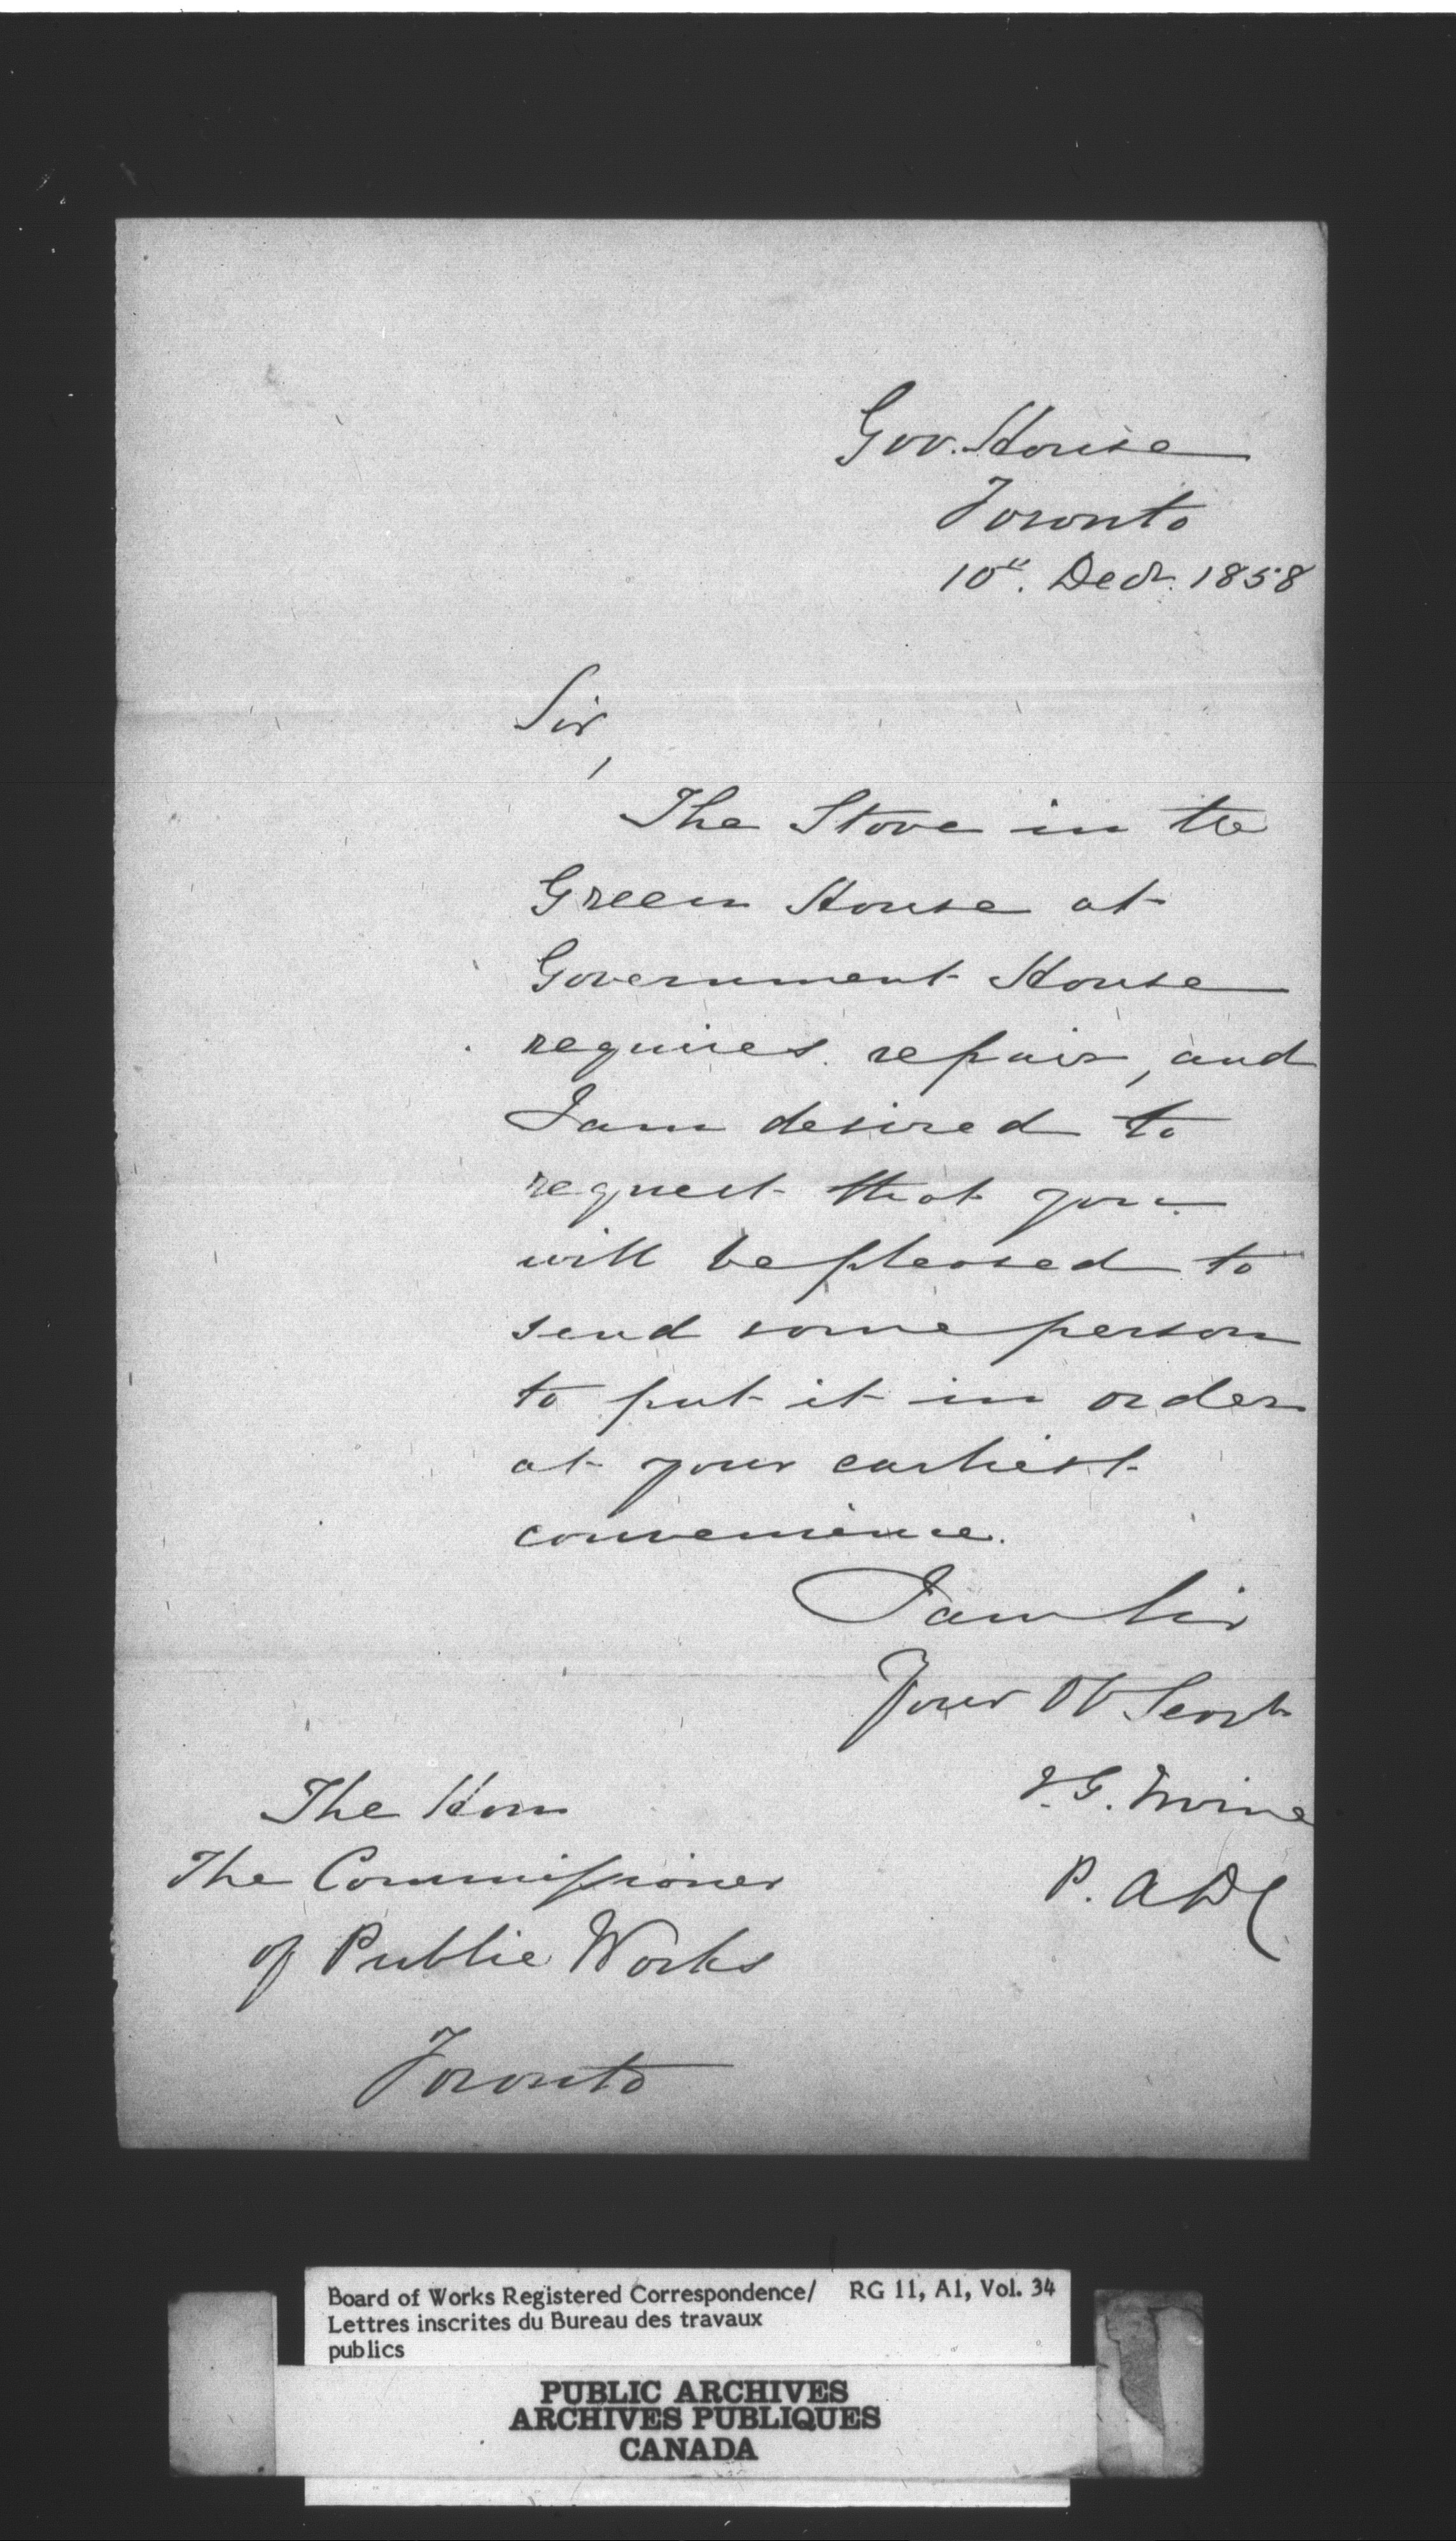 Gov. House
Toronto
10th. Decr. 1858
Sir,
The Stove in the
Green House at
Government House
requires repair, and
I am desired to
request that you
will be pleased to
send some person
to put it in order
at your earliest
convenience.
I am Sir
Your Ob Servt
J. G. Irvine
P. ADC
The Hon
The Commissioner
of Public Works
Toronto
Board of Works Registered Correspondence/ RG 11, A1, Vol. 34
Lettres inscrites du Bureau des travaux
publics
PUBLIC ARCHIVES
ARCHIVES PUBLIQUES
CANADA